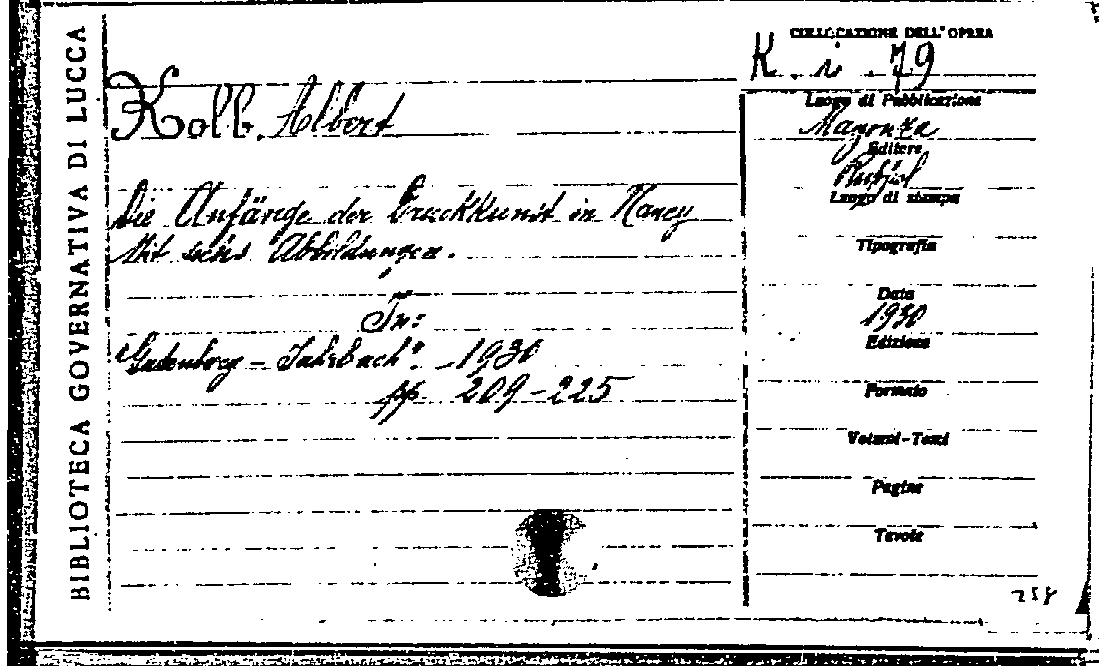 BIBLIOTECA GOVERNATIVA DI LUCCA
COLLOCAZIONE DELL'OPERA
K. i. 79
Kolb, Albert
Die Anfänge der Druckkunst in Nancy
Mit sechs Abbildungen.
In:
"Gutenberg - Jahrbuch". - 1930
pp. 209-225
Luogo di Pubblicazione
Magonza
Editore
Luogo di stampa
Tipografia
Data
1930
Edizione
Formato
Volumi-Tomi
Pagine
Tavole